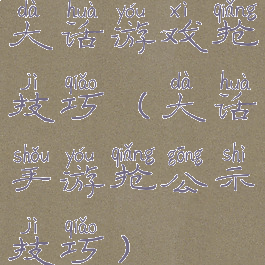 dà huà yóu xì qiǎng
大话游戏抢
jì qiǎo dà huà
技巧（大话
shǒu yóu qiǎng gōng shì
手游抢公示
jì qiǎo
技巧）